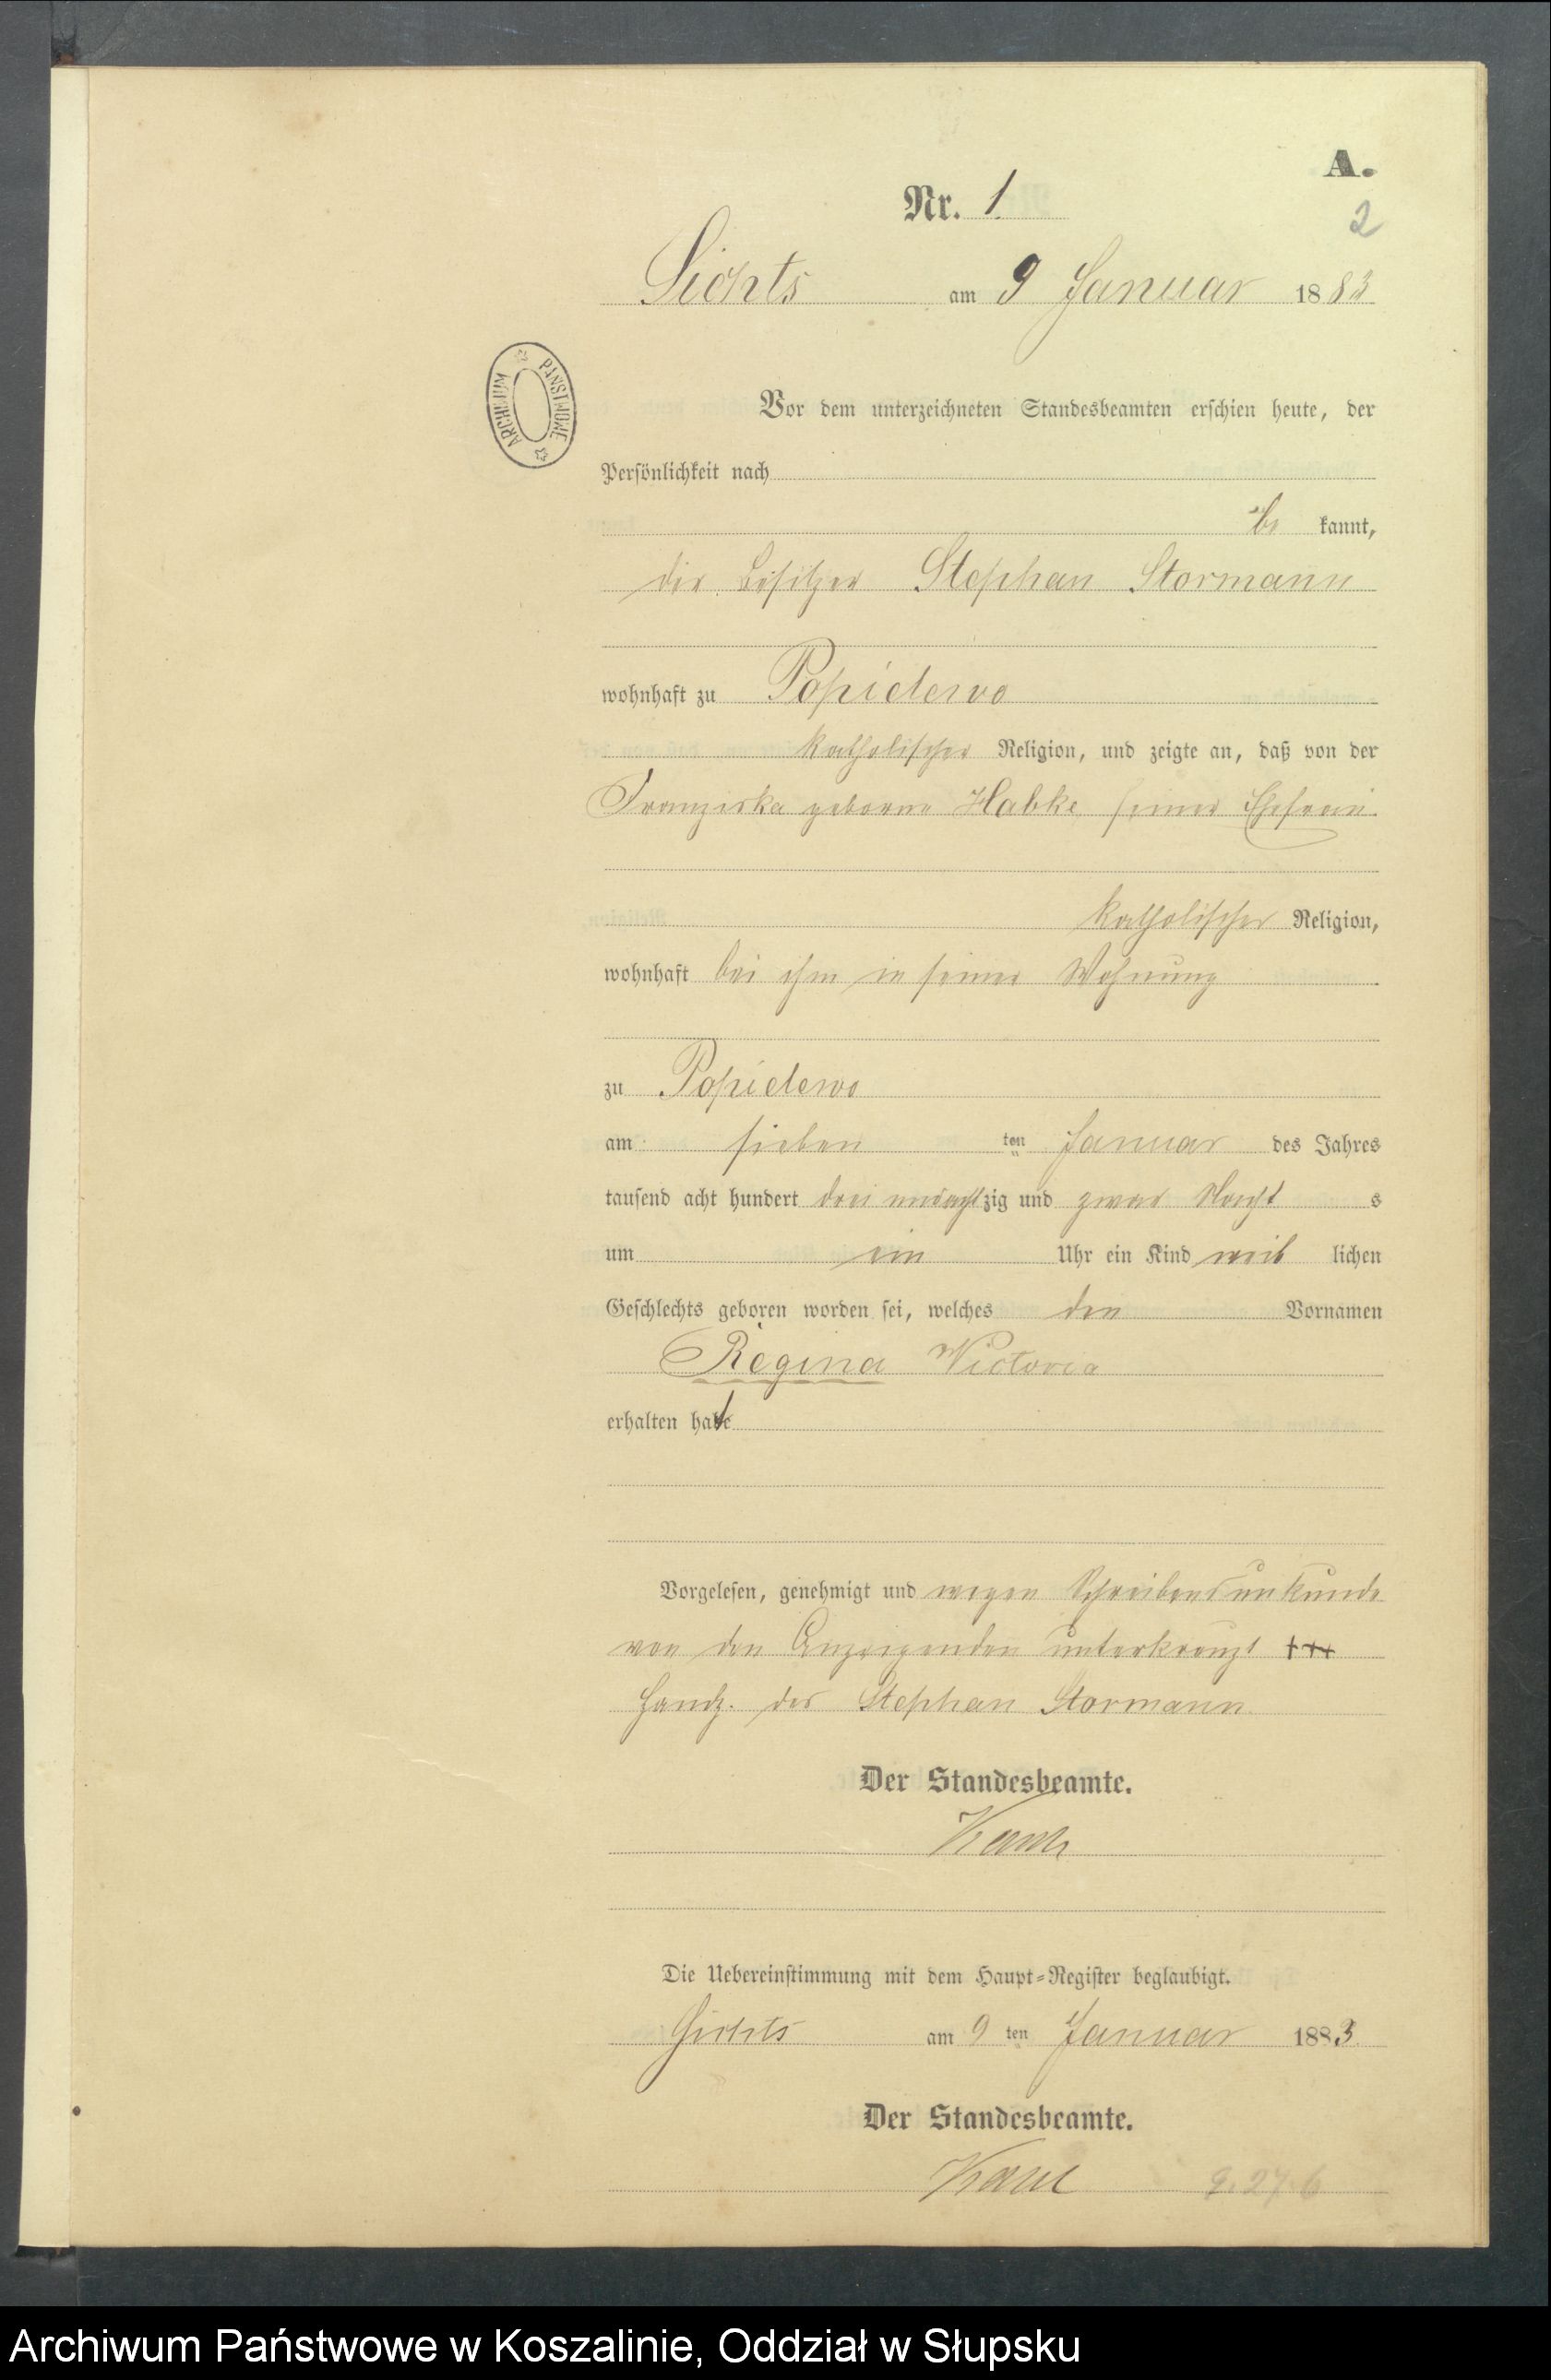 A.
Nr. 1.
2
Lichts am 9 Januar 1883
ARCHIWUM PAŃSTWOWE
Vor dem unterzeichneten Standesbeamten erschien heute, der
Persönlichkeit nach
be kannt,
der Besitzer Stephan Stormann
wohnhaft zu Popidewo
katholischer Religion, und zeigte an, daß von der
Franziska geborne Habke, seiner Ehefrau
katholischer Religion,
wohnhaft bei ihm in seiner Wohnung
zu Popidewo
am sieben ten Januar des Jahres
tausend acht hundert drei und acht zig und zwar Nacht s
um ein Uhr ein Kind weib lichen
Geschlechts geboren worden sei, welches den Vornamen
Regina Victoria
erhalten habe
Vorgelesen, genehmigt und wegen Schreibensunkunde
von den Anzeigenden unterkreuzt +++
Handz. des Stephan Stormann.
Der Standesbeamte.
Die Uebereinstimmung mit dem Haupt-Register beglaubigt.
am 9 ten Januar 1883.
Der Standesbeamte.
9.27.6
Archiwum Państwowe w Koszalinie, Oddział w Słupsku